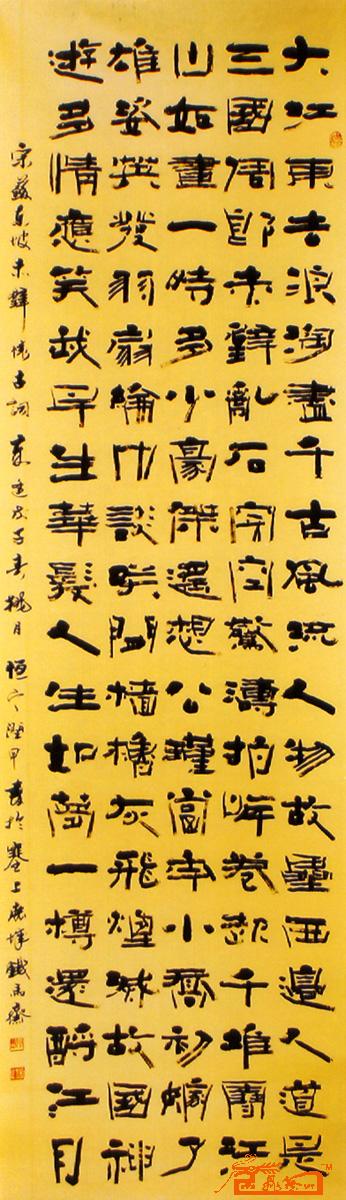 大江東去浪淘盡千古風流人物故壘西邊人道是
三國周郎赤壁亂石穿空驚濤拍岸卷起千堆雪江
山如畫一時多小豪傑遙想公瑾當年小喬初嫁了
雄姿英發羽扇綸巾談笑間檣櫓灰飛煙滅故國神
遊多情應笑我早生華髮人生如夢一樽還酹江月
宋蘇東坡赤壁懷古詞 戊子春桃月 書於塞上鹿城鐵馬齋